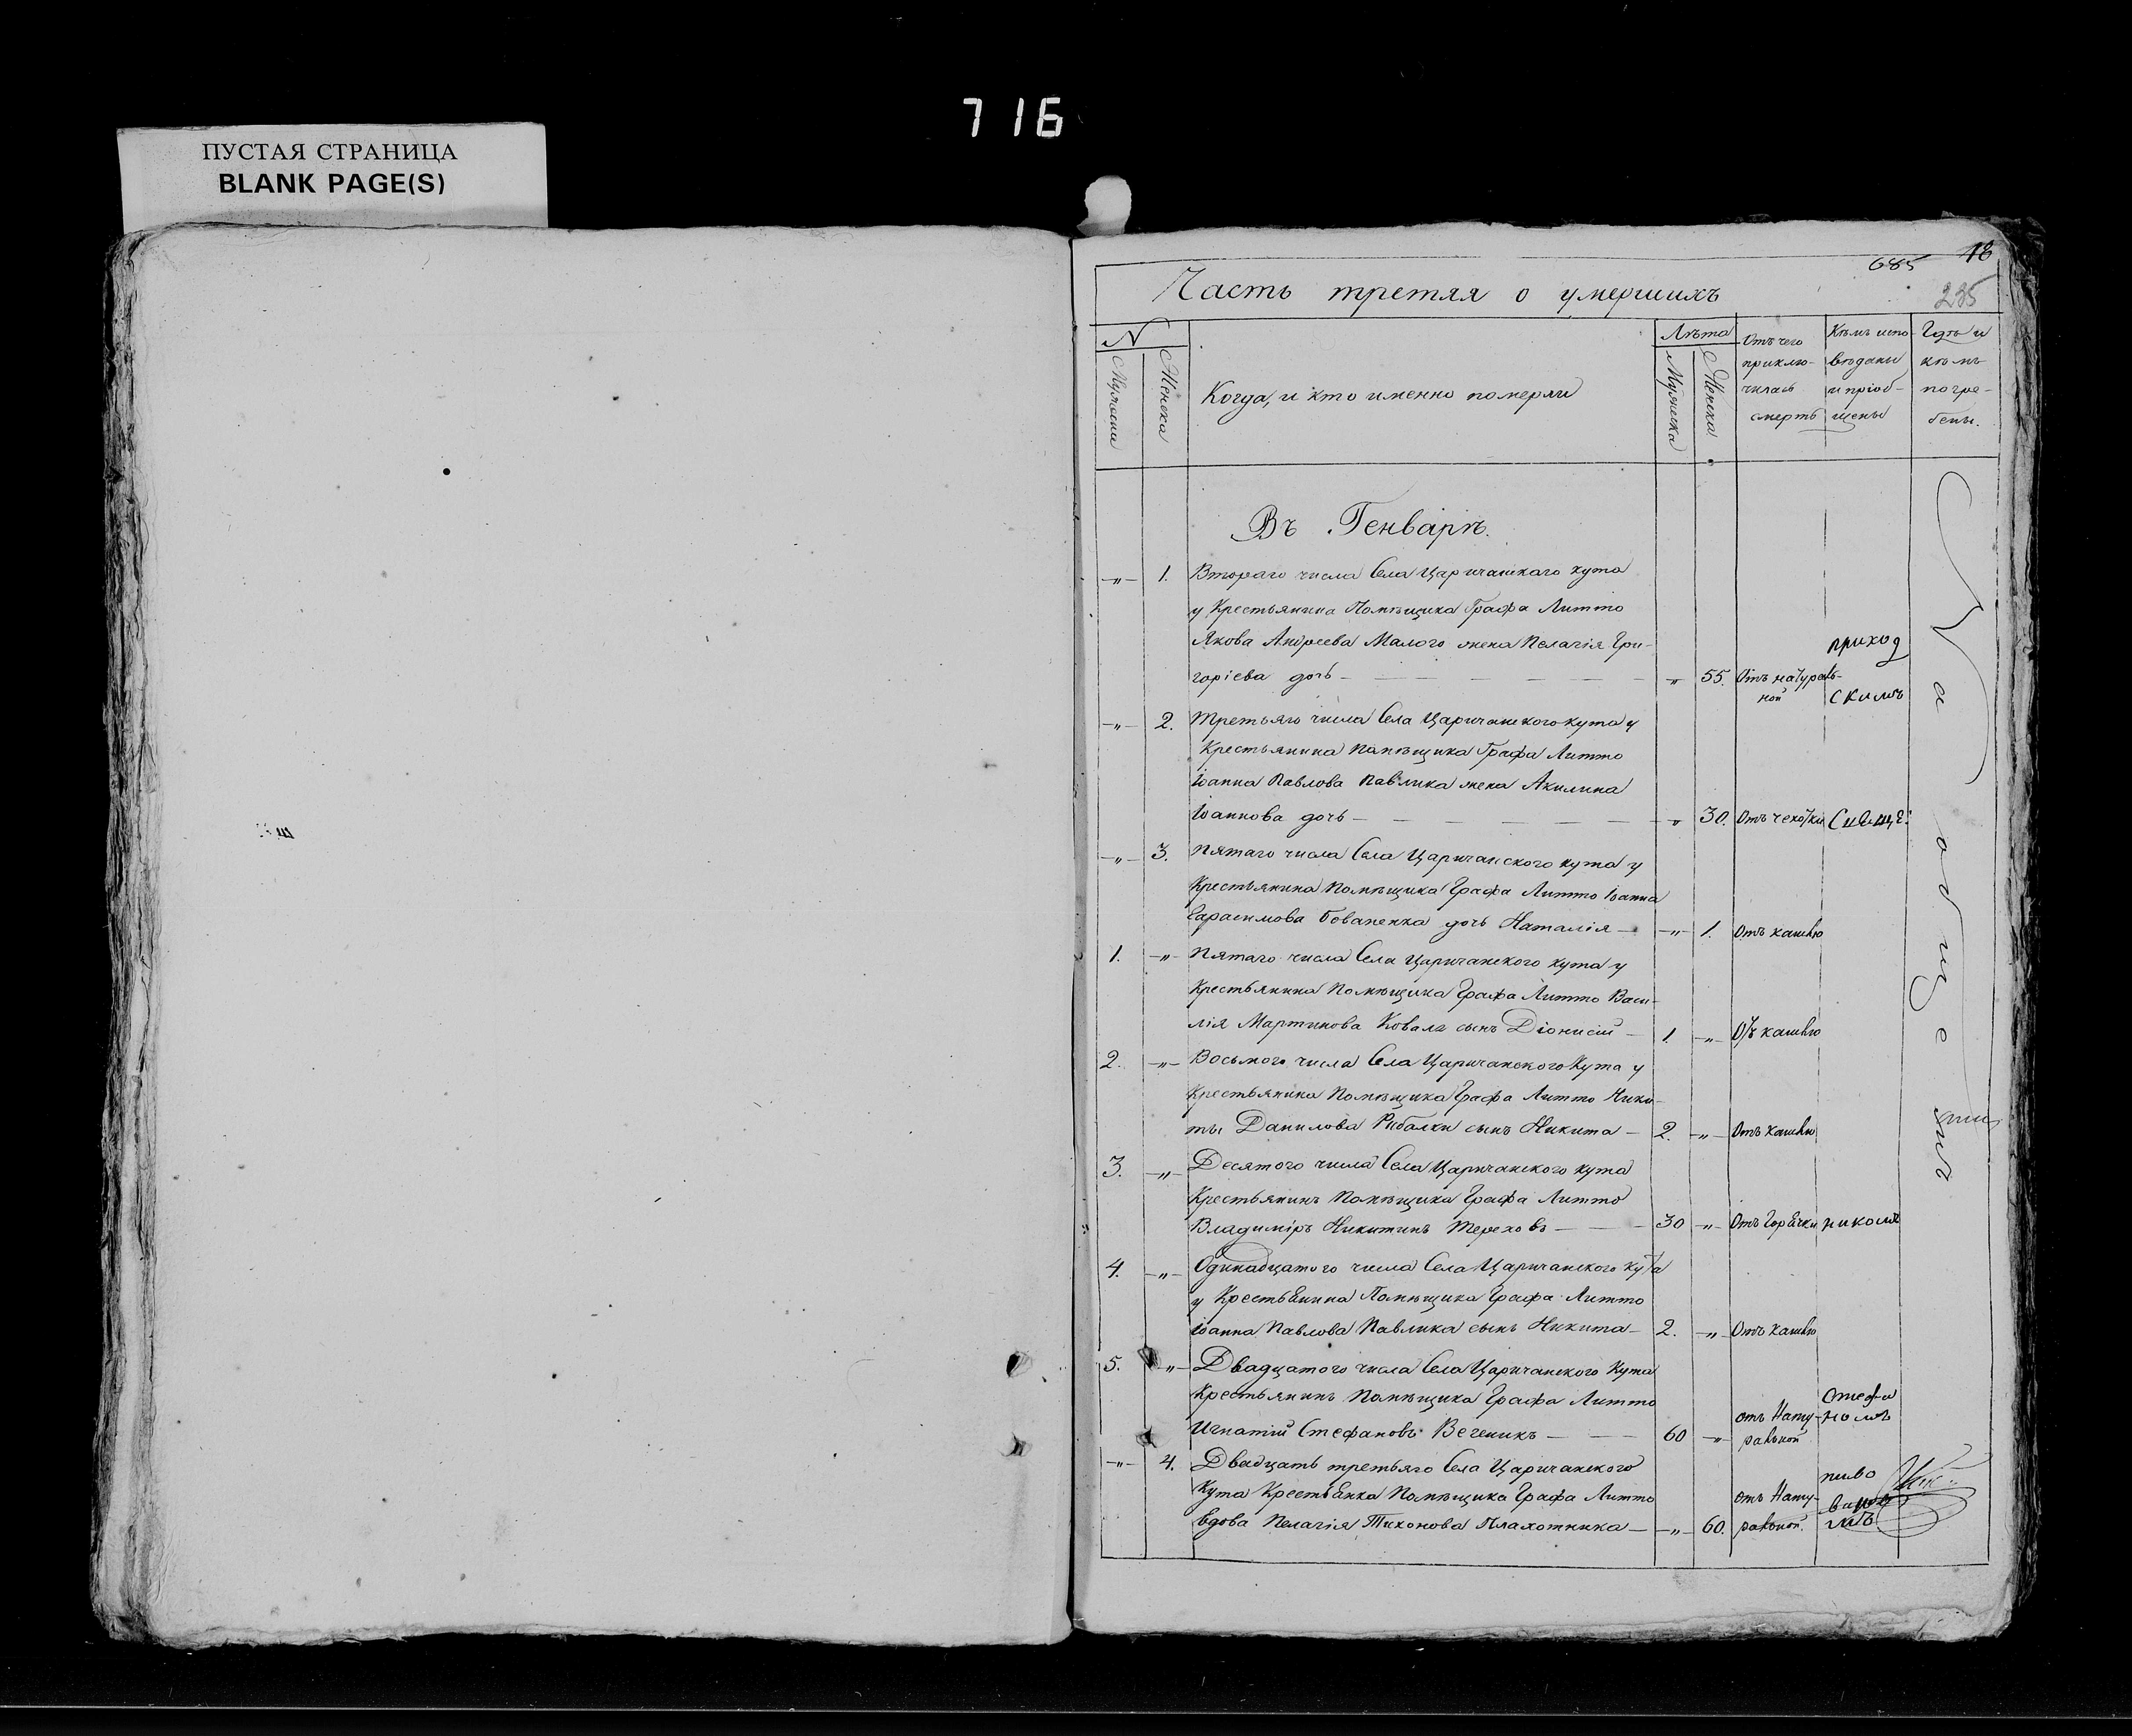 716
ПУСТАЯ СТРАНИЦА
BLANK PAGE(S)
685 18
235
Часть третяя о умершихъ
N
Мужеска
Женска
Когда, и кто именно померли
Лѣта
Мужеска
Женска
Отъ чего приклю-
чилась
смерть
Кѣмъ испо-
вѣданы
и пріоб-
щены
Гдѣ и
кѣмъ
погре-
бены.
Въ Генварѣ.
-„- 1. Втораго числа Села Царичанскаго кута
у Крестьянина Помѣщика Графа Литто
Якова Андреева Малого жена Пелагія Гри-
горіева дочь — „ 55. Отъ натураль-
ной
приход
скимъ
-„- 2. Третьяго числа Села Царичанского кута у
Крестьянина Памѣщика Графа Литто
Іоанна Павлова Павлика жена Акилина
Іоаннова дочь — „ 30. Отъ чехотки
-„- 3. Пятаго числа Села Царичанского кута у
Крестьянина Помѣщика Графа Литто Іоанна
Гарасимова дочь Наталія — -„- 1. Отъ кашлю
1. -„- Пятаго числа Села Царичанского кута у
Крестьянина Помѣщика Графа Литто Васи-
лія Мартинова Коваля сынъ Діонисій — 1. -„- Отъ кашлю
2. -„- Восьмого числа Села Царичанского Кута у
Крестьянина Помѣщика Графа Литто Ники-
ты Данилова Рибалки сынъ Никита — 2. -„- Отъ кашлю
3. -„- Десятого числа Села Царичанского кута
Крестьянинъ Помѣщика Графа Литто
Владиміръ Никитинъ Тереховъ — 30 -„- Отъ Горячки
4. -„- Одинадцатого числа Села Царичанского кута
у Крестьянина Помѣщика Графа Литто
Іоанна Павлова Павлика сынъ Никита — 2. -„- Отъ кашлю
5. -„- Двадцатого числа Села Царичанского Кута
Крестьянинъ Помѣщика Графа Литто
Игнатій Стефановъ — 60 -„- отъ Нату-
ральной
-„- 4. Двадцать третьяго Села Царичанского
Кута Крестьянка Помѣщика Графа Литто
вдова Пелагія Тихонова Плахотника — -„- 60. отъ Нату-
ральной.
На общемъ